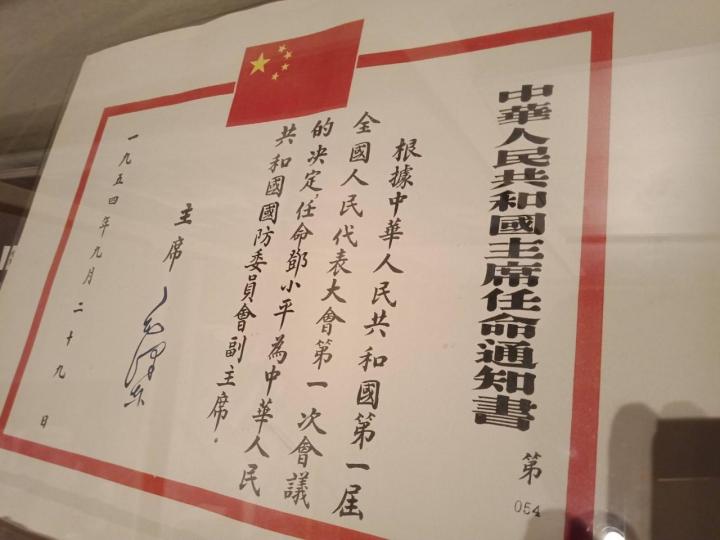 中華人民共和國主席任命通知書
第
054
根據中華人民共和國第一屆
全國人民代表大會第一次會議
的决定,任命鄧小平為中華人民
共和國國防委員會副主席.
主席
毛澤东
一九五四年九月二十九日